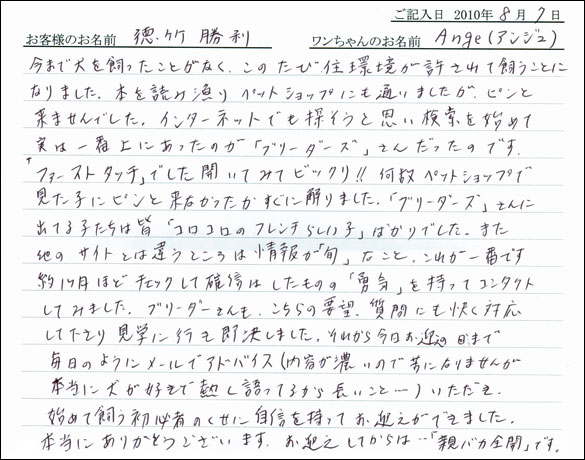 ご記入日 2010年 8月 7日
お客様のお名前 徳竹 勝利 ワンちゃんのお名前 Ange(アンジュ)
今まで犬を飼ったことがなく、このたび住環境が許されて飼うことに
なりました。本を読み漁り ペットショップにも通いましたが、ピンと
来ませんでした。インターネットでも探そうと思い検索を始めて
実は一番上にあったのが「ブリーダーズ」さんだったのです。
「ファーストタッチ」でした 開いてみてビックリ!! 何故ペットショップで
見た子にピンと来なかったかすぐに解りました。「ブリーダーズ」さんに
出てる子たちは皆「コロコロのフレンチらしい子」ばかりでした。また
他のサイトとは違うところは情報が「旬」なこと、これが一番です
約1ヶ月ほどチェックして確信はしたものの「勇気」を持ってコンタクト
してみました。ブリーダーさんも、こちらの要望、質問にも快く対応
して下さり 見学に行き即決しました。それから今日お迎の日まで
毎日のようにメールでアドバイス(内容が濃いので苦になりませんが
本当に犬が好きで熱く語ってるから長いこと…)いただき
始めて飼う初心者のくせに自信を持ってお迎えができました。
本当にありがとうございます。お迎えしてからは…「親バカ全開」です。